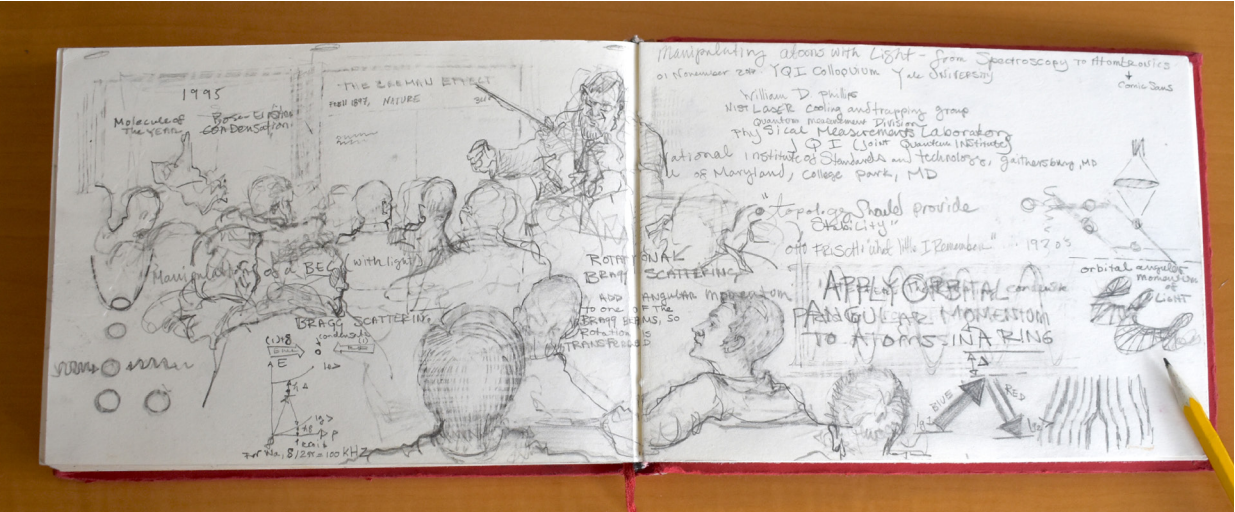 1995
Molecule of
The YEAR
Bose-Einstein
Condensation
THE ZEEMAN EFFECT
1897, NATURE
Manipulation of a BEC (with light)
BRAGG SCATTERING
E
P
For Na, 8/2π = 100 KHZ
ROTATIONAL
BRAGG SCATTERING
ADD ANGULAR momentum
to one of the
BRAGG BEAMS, SO
Rotation is
TRANSFERRED
Manipulating atoms with Light - from Spectroscopy to Atomtronics
Comic Sans
01 November YQI Colloquium Yale UNIVERSITY
William D Phillips
NIST LASER Cooling and trapping group
Quantum measurement Division
Physical Measurements Laboratory
JQI (Joint Quantum INstitute)
National Institute of Standards and technology, gaithersburg, MD
of Maryland, College park, MD
"topology Should provide
Stability"
Otto FRISCH "What little I Remember" 1920's
orbital angular
momentum
of
LIGHT
APPLY ORBITAL
ANGULAR MOMENTUM
TO ATOMS IN A RING
BLUE
RED